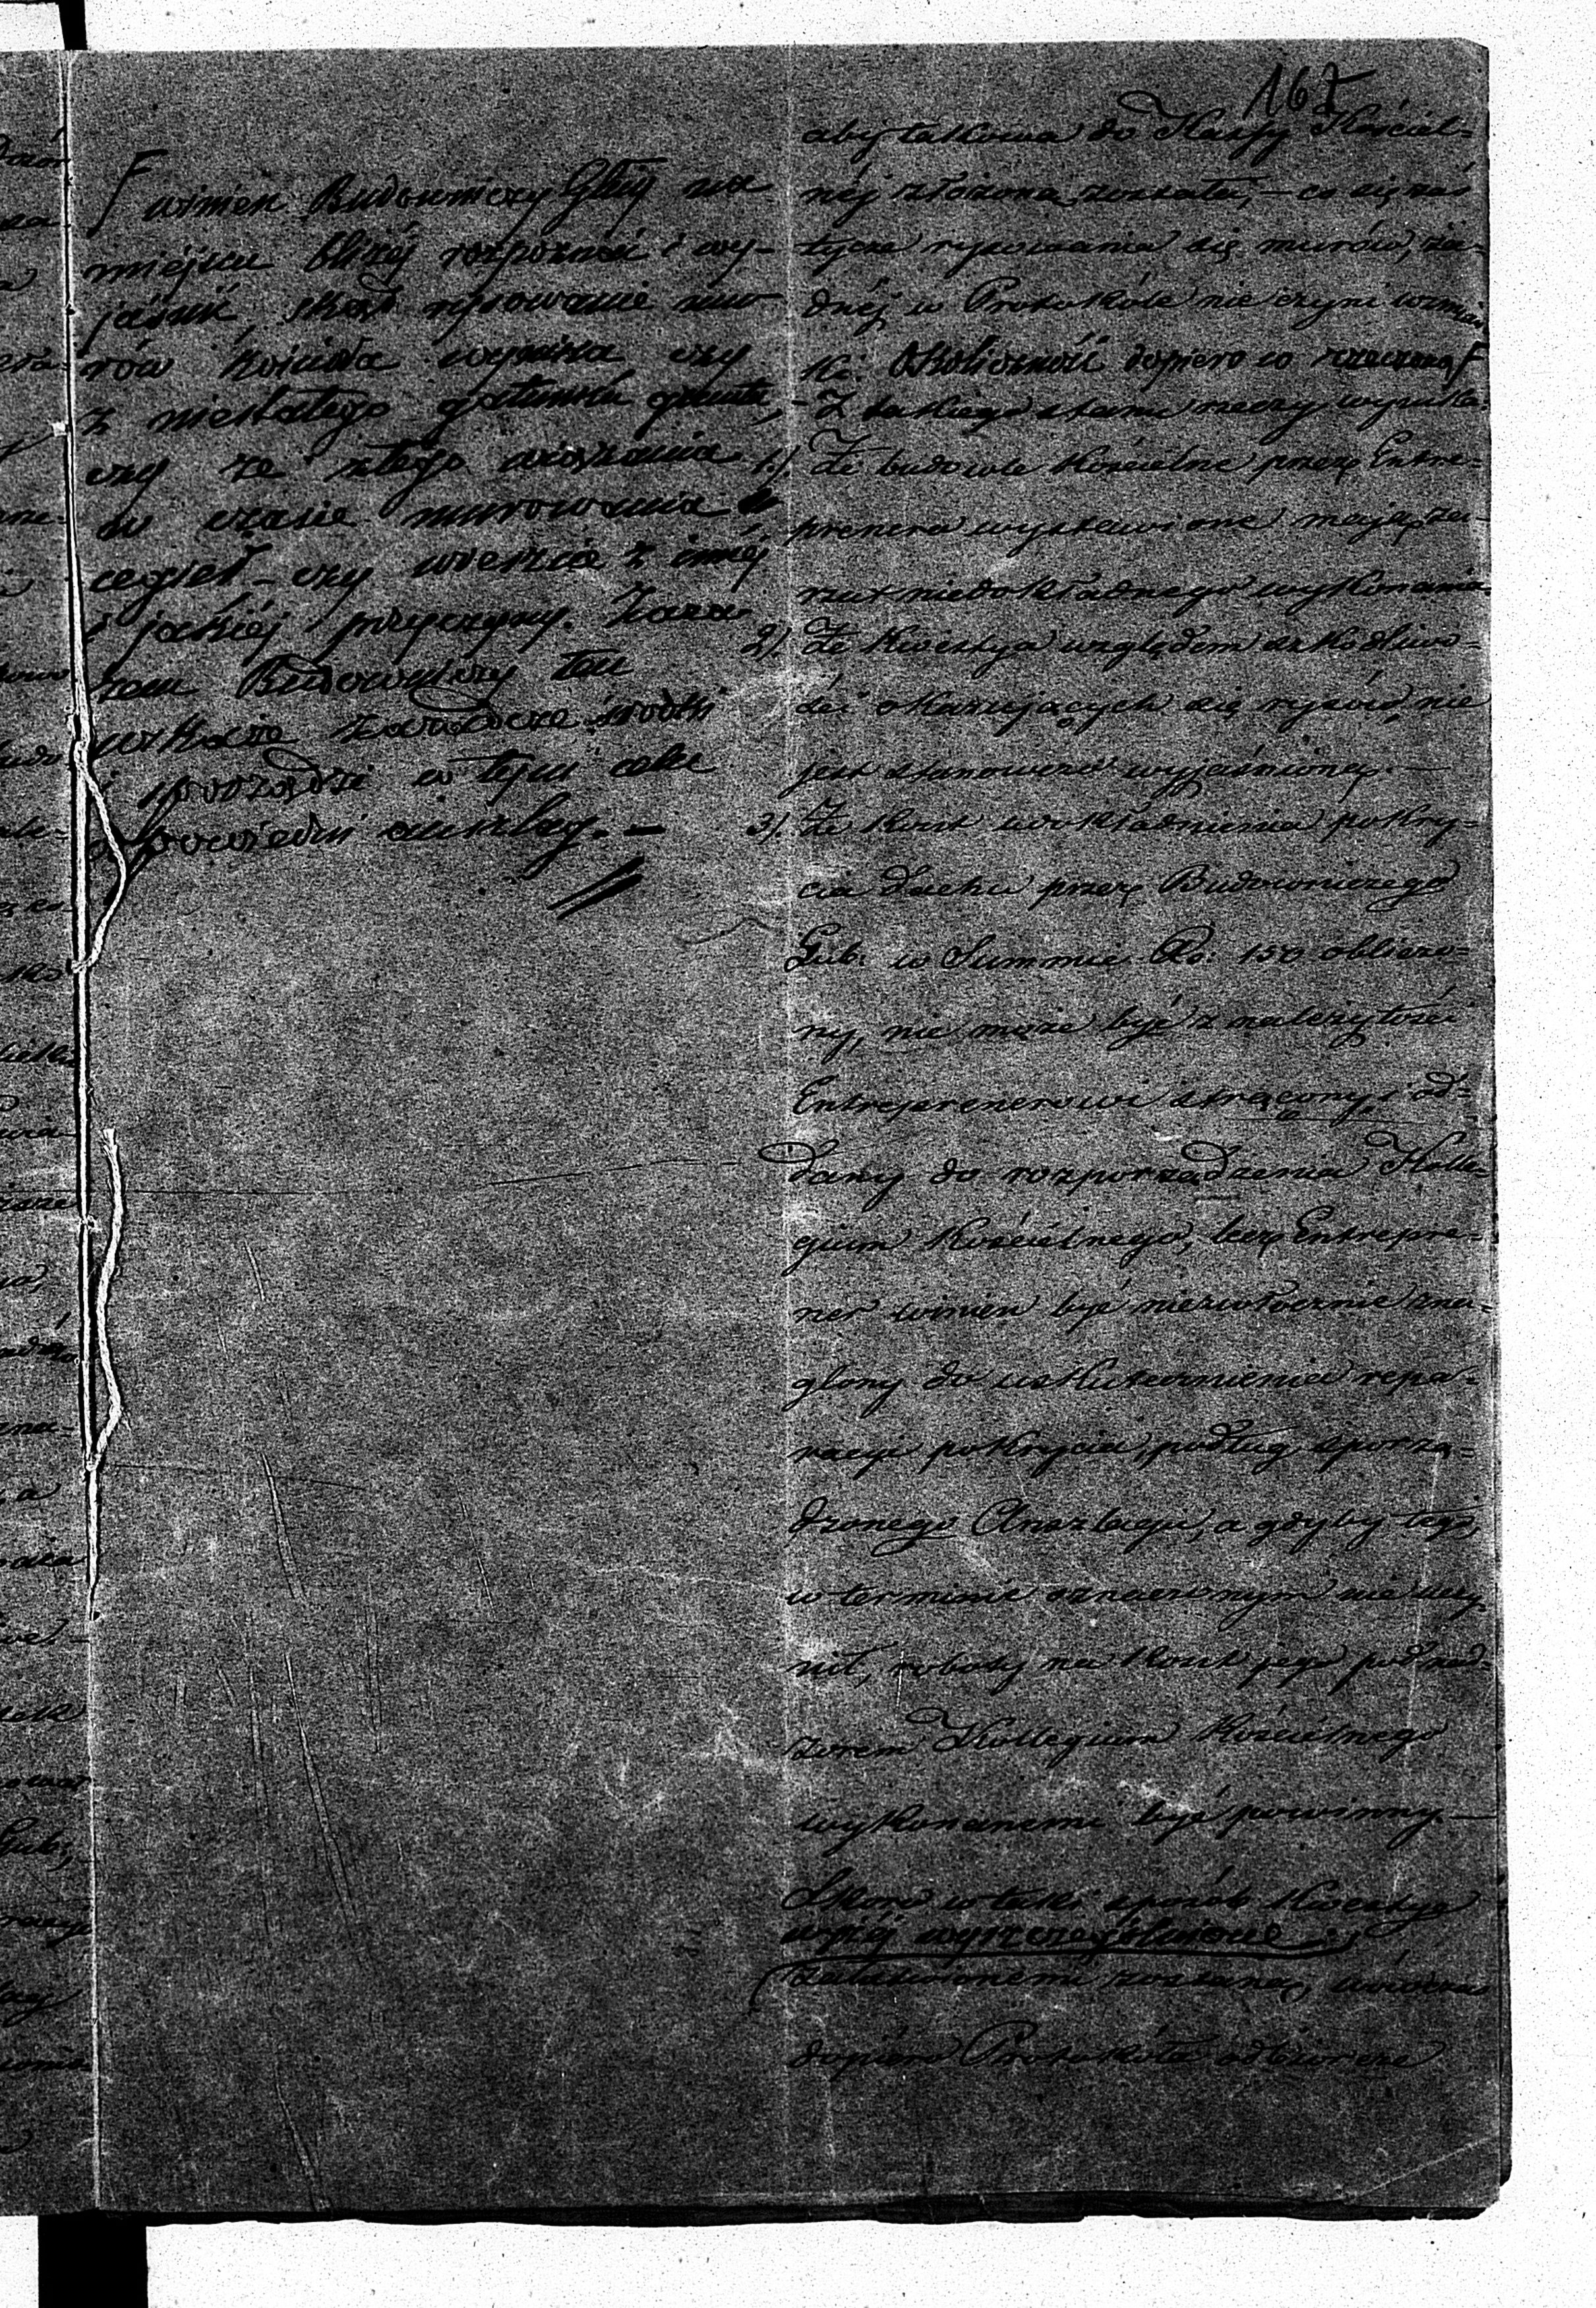 167
F winien Budowniczy Gub na
miejscu bliżej rozpoznać i wy-
jaśnić, skąd rysowanie mu-
rów kościoła wynika czy
z niestałego gatunku gruntu,
czy ze złego wiązania
w czasie murowania
cegieł – czy wreszcie z innéj
jakiéj przyczyny. Zara-
zem Budowniczy ten
wskaże zaradcze środki
i sporządzi w tym celu
odpowiedni anszlag. –
aby takowa do Kassy Kościel-
néj złożona została, – co się zaś
tycze rysowania się murów, ża-
dnéj w Protokóle nie czyni wzmian
ki. Okoliczność dopiero w F
– Z takiego stanu rzeczy wypada
1.) Że budowle Kościelne przez Entre-
prenera wystawione mają za-
rzut niedokładnego wykonania
2.) Że Kwestya względem szkodliwo-
ści okazujących się rysów, nie
jest stanowczo wyjaśnioną. –
3.) Że koszt udokładnienia pokry-
cia dachu przez Budowniczego
Gub: w Summie Rs: 150 obliczo-
ny, nie może być z należytości
Entreprenerowi strącony i od-
dany do rozporządzenia Kolle-
gium Kościelnego, lecz Entrepre-
ner winien być niezwłocznie zna-
glony do uskutecznienia repa-
racyi pokrycia, podług sporzą-
dzonego Anszlagu, a gdyby tego,
w terminie oznaczonym nie uczy-
nił, roboty na koszt jego pod nad-
zorem Kollegium Kościelnego
wykonanemi być powinny. –
Skoro w taki sposób Kwestye
wyżéj wyszczególnione
załatwionemi zostaną, wówczas
dopiero Protokóła odbiorcze